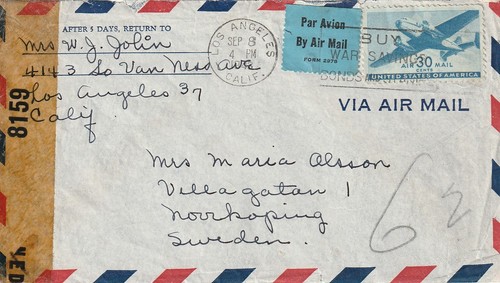 AFTER 5 DAYS, RETURN TO
Mrs W. J. Jolin
4143 So Van Ness Ave
Los Angeles 37
Calif.
8159
LOS ANGELES
SEP 8
4 PM
CALIF.
Par Avion
By Air Mail
FORM 2978
BUY
WAR SAVINGS
BONDS
AIR 30 MAIL
CENTS
UNITED STATES OF AMERICA
VIA AIR MAIL
Mrs Maria Olsson
Villagatan 1
Norrkoping
Sweden.